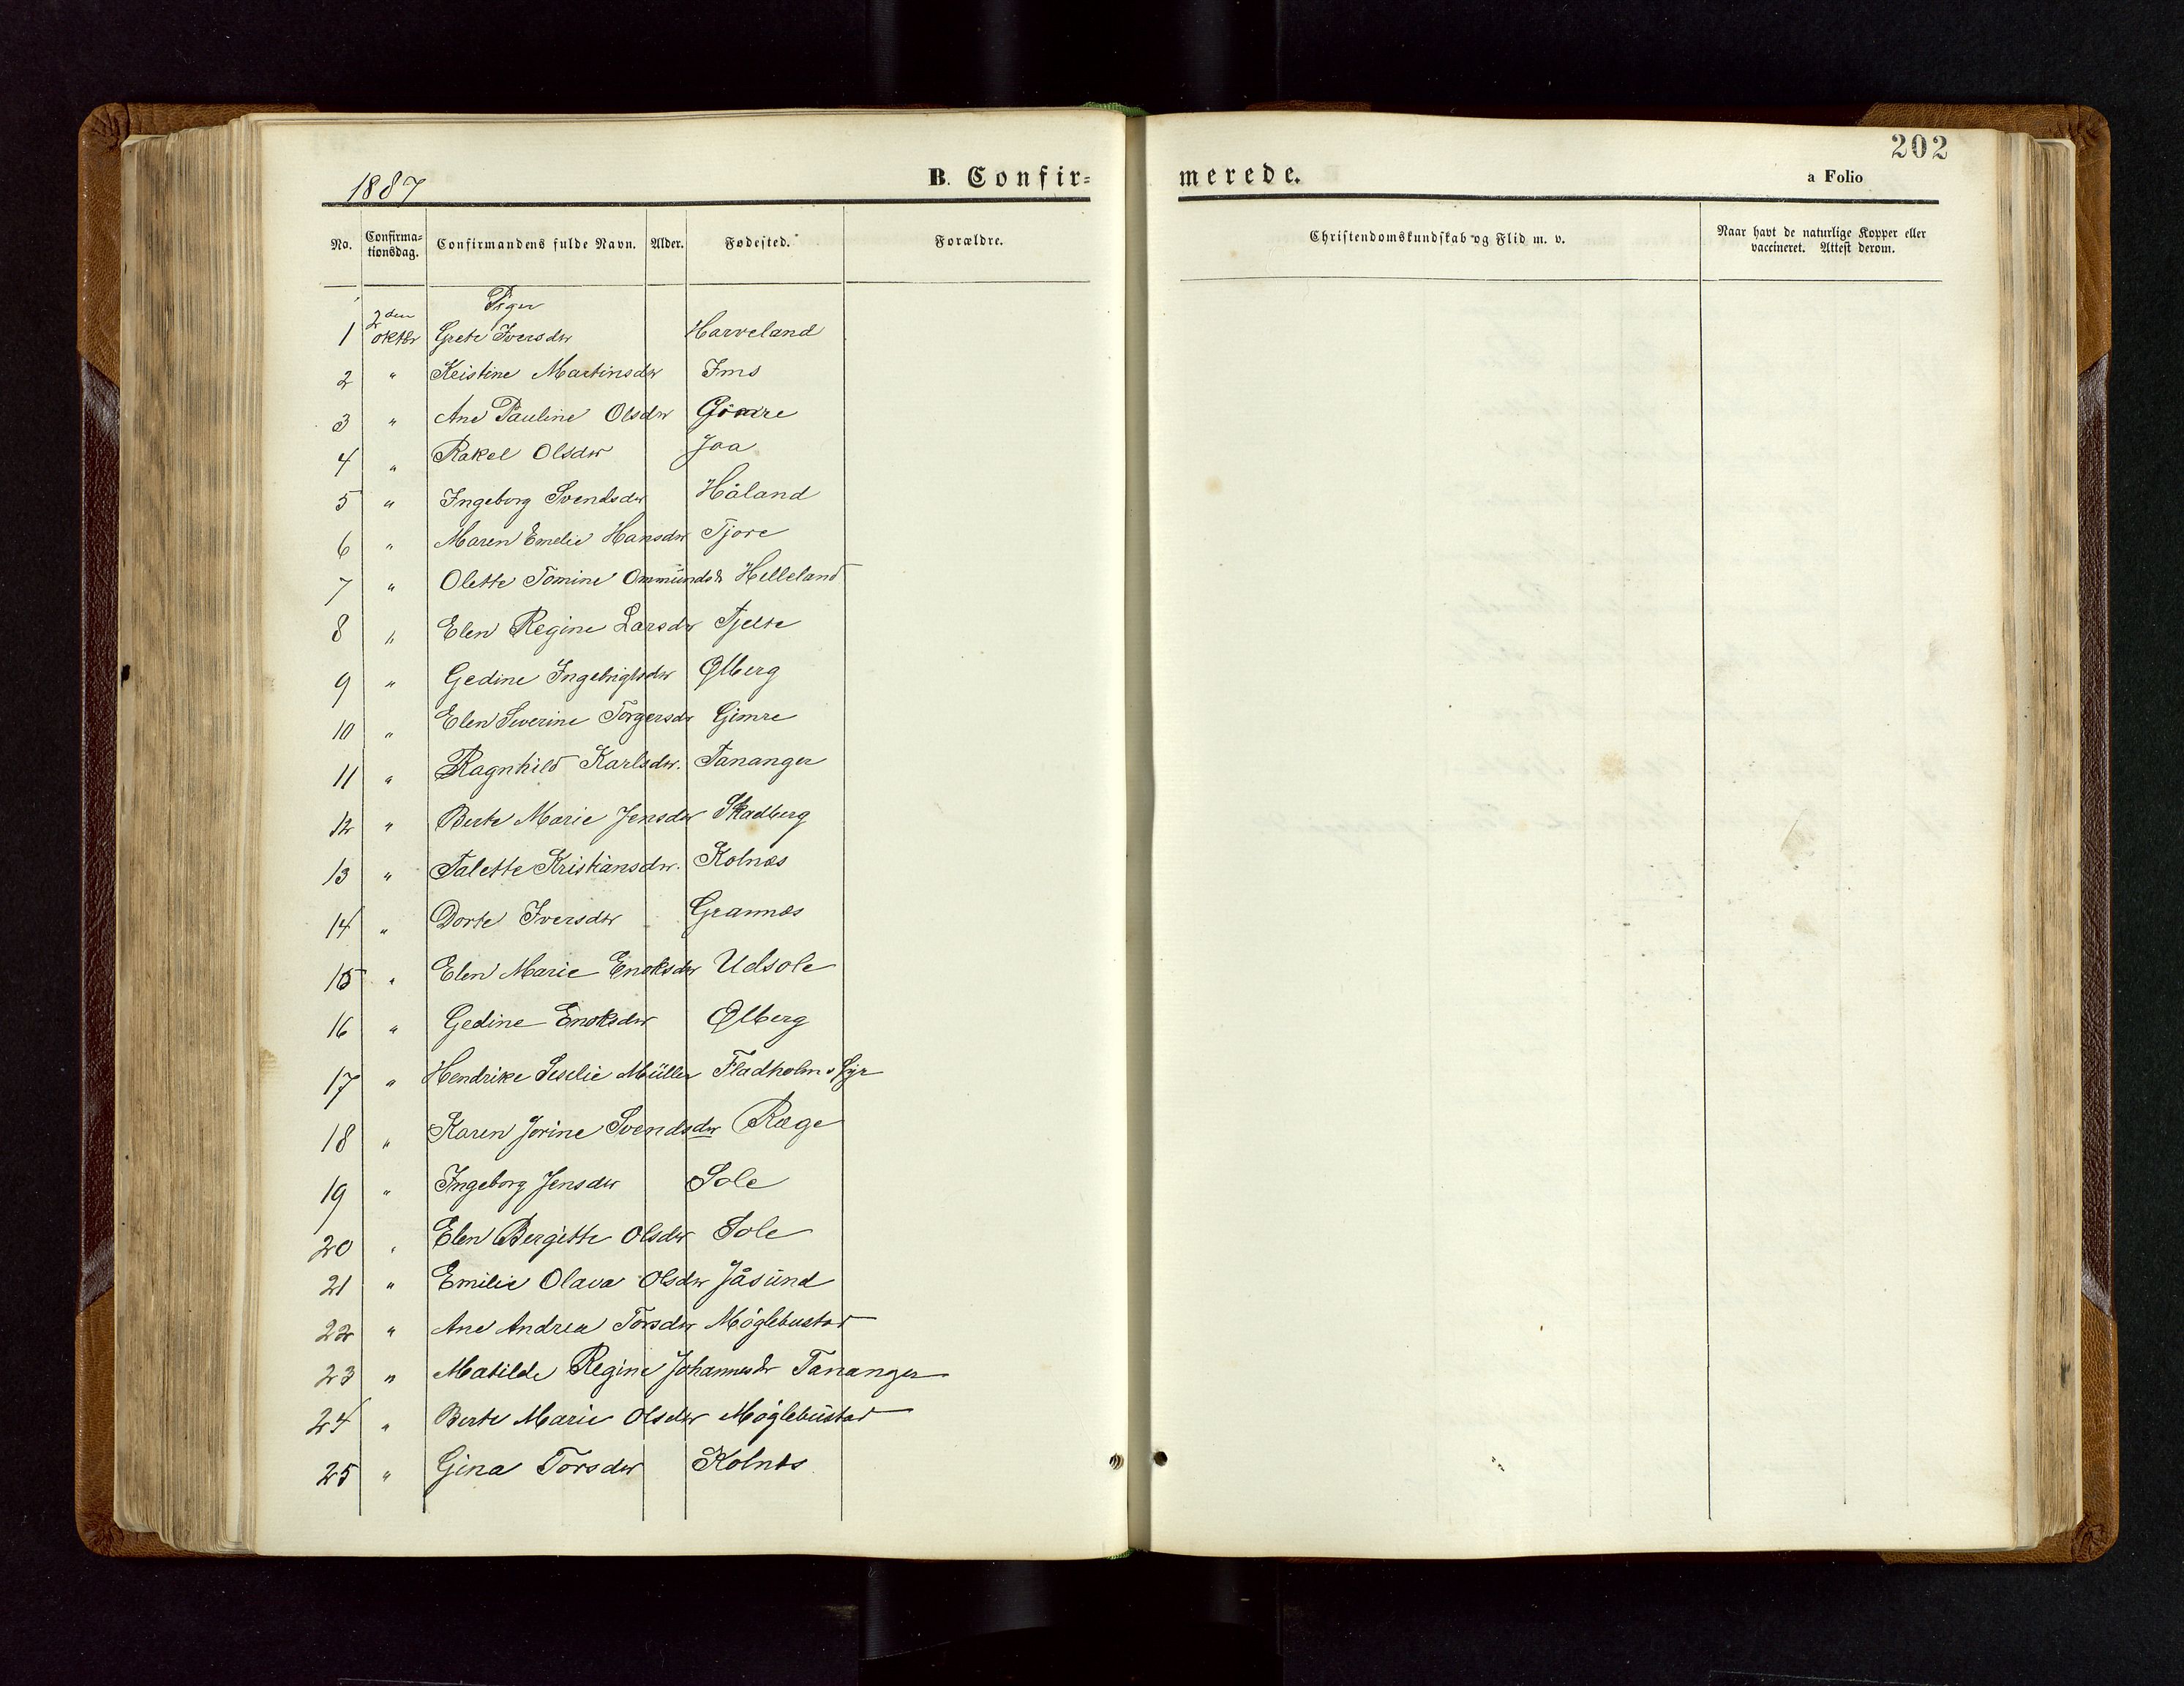 202
1887 B. Confir= merede. a Folio
No. Confirma=tionsdag. Confirmandens fulde Navn. Alder. Fødested. Forældre. Christendomskundskab og Flid m. v. Naar havt de naturlige Kopper eller vaccineret. Attest derom.
Piger
1 2den oktbr Grete Iversdtr Harveland
2 " Kristine Martinsdtr Ims
3 " Ane Pauline Olsdtr
4 " Rakel Olsdtr Joa
5 " Ingeborg Svendsdtr Håland
6 " Maren Emelie Hansdtr Tjore
7 " Olette Tomine Ommundsd Helleland
8 " Elen Regine Larsdtr Tjelte
9 " Gedine Ingebrigtsdtr Ølberg
10 " Elen Severine Torgersdtr Gimre
11 " Ragnhild Karlsdtr. Tananger
12 " Berte Marie Jensdtr Skadberg
13 " Talette Kristiansdtr. Kolnæs
14 " Dorte Iversdtr Grannæs
15 " Elen Marie Enoksdtr Udsole
16 " Gedine Enoksdtr Ølberg
17 " Hendrike Seselie Müller Fladholms Fyr
18 " Karen Jorine Svendsdtr Ræge
19 " Ingeborg Jensdtr Sole
20 " Elen Bergitte Olsdtr Sole
21 " Emilie Olava Olsdtr Jåsund
22 " Ane Andrea Torsdtr Møglebustad
23 " Matilde Regine Johannesdr Tananger
24 " Berte Marie Olsdtr Møglebustad
25 " Gina Torsdtr Kolnæs